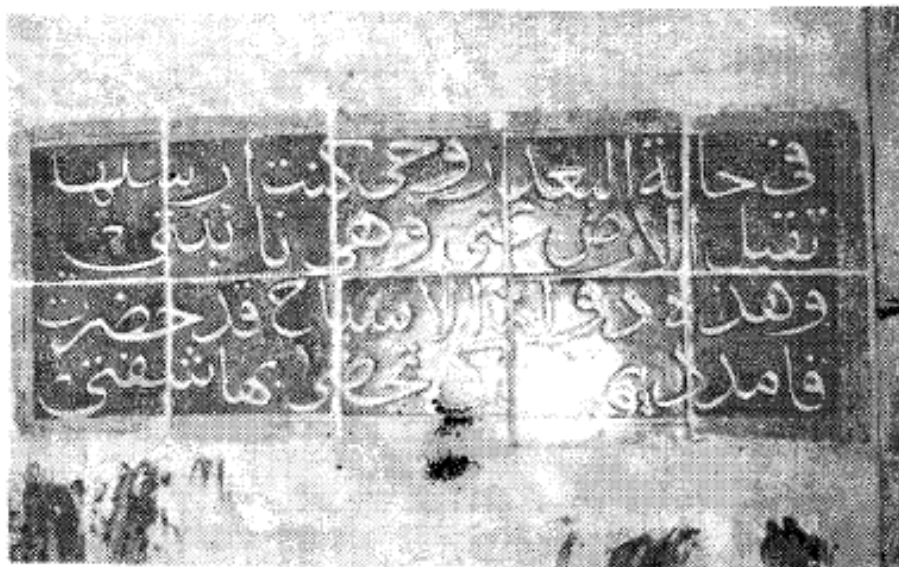 في حالة البعد روحي كنت ارسلها
تقبل الارض عني وهي نائبتي
وهذه دولة الاشباح قد حضرت
فامدد كي تحظى بها شفتي